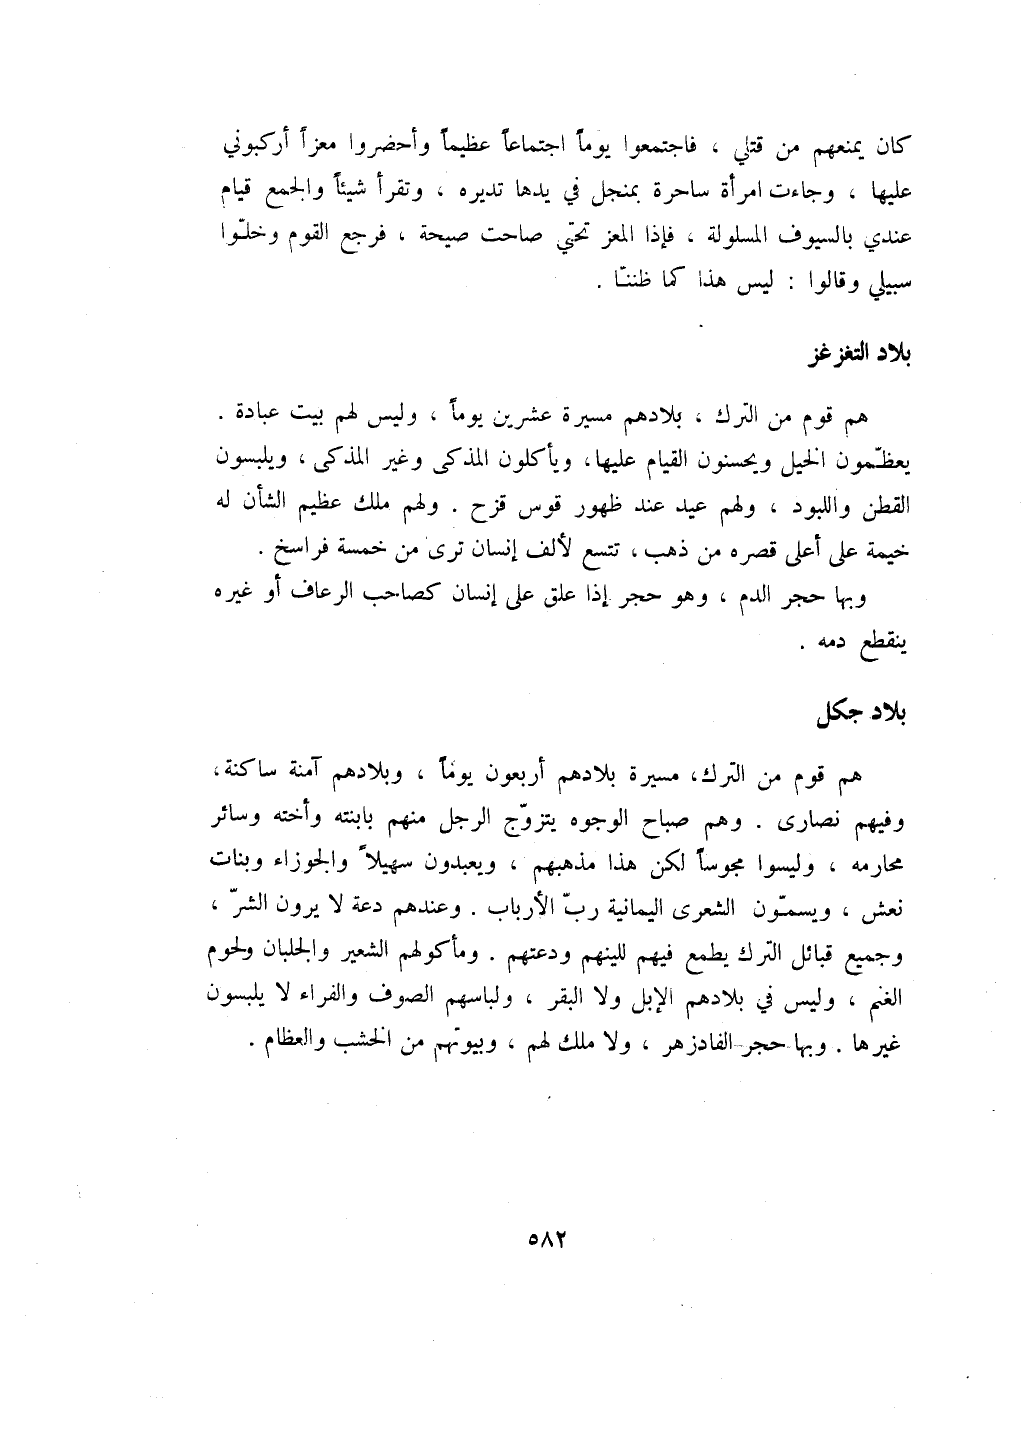 كان يمنعهم من قتلي ، فاجتمعوا يوماً اجتماعاً عظيماً وأحضروا معزاً أركبوني
عليها ، وجاءت امرأة ساحرة بمنجل في يدها تديره ، وتقرأ شيئاً والجمع قيام
عندي بالسيوف المسلولة ، فإذا المعز تحتي صاحت صيحة ، فرجع القوم وخلّوا
سبيلي وقالوا : ليس هذا كما ظننّا .
بلاد التغزغز
هم قوم من الترك ، بلادهم مسيرة عشرين يوماً ، وليس لهم بيت عبادة .
يعظّمون الخيل ويحسنون القيام عليها، ويأكلون المذكى وغير المذكى ، ويلبسون
القطن واللبود ، ولهم عيد عند ظهور قوس قزح . ولهم ملك عظيم الشأن له
خيمة على أعلى قصره من ذهب، تتسع لألف إنسان ترى من خمسة فراسخ .
وبها حجر الدم ، وهو حجر إذا علق على إنسان كصاحب الرعاف أو غيره
ينقطع دمه .
بلاد جكل
هم قوم من الترك، مسيرة بلادهم أربعون يوماً ، وبلادهم آمنة ساكنة،
وفيهم نصارى . وهم صباح الوجوه يتزوّج الرجل منهم بابنته وأخته وسائر
محارمه ، وليسوا مجوساً لكن هذا مذهبهم ، ويعبدون سهيلاً والجوزاء وبنات
نعش ، ويسمّون الشعرى اليمانية ربّ الأرباب . وعندهم دعة لا يرون الشرّ ،
وجميع قبائل الترك يطمع فيهم للينهم ودعتهم . ومأكولهم الشعير والجلبان ولحوم
الغنم ، وليس في بلادهم الإبل ولا البقر ، ولباسهم الصوف والفراء لا يلبسون
غيرها . وبها حجر الفادزهر ، ولا ملك لهم ، وبيوتهم من الخشب والعظام .
٥٨٢